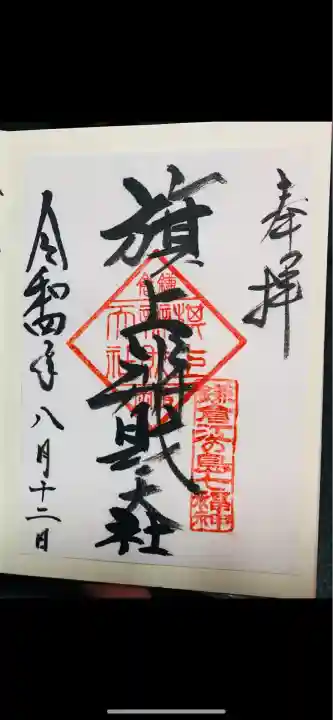 奉拝
旗上弁財天社
鎌倉江の島七福神
令和四年八月十二日